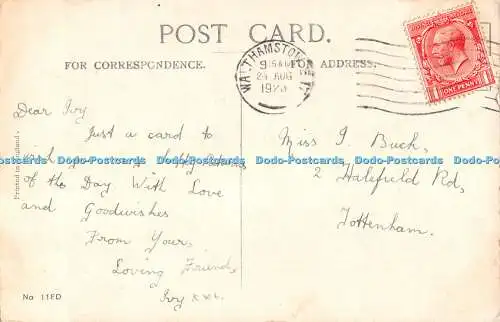 POST CARD.
FOR CORRESPONDENCE.
FOR ADDRESS.
WALTHAMSTOW
9 15 AM
24 AUG
ONE PENNY
Dear Ivy
Just a card to
wish you many happy returns
of the Day With Love
and Goodwishes
From Your
Loving Friend,
Ivy xxx.
Miss I. Buck,
2 Halefield Rd,
Tottenham.
Dodo-Postcards Dodo-Postcards Dodo-Postcards Dodo-Postcards Dodo-Postcards Dodo-Postcards
Printed in England.
No 11FD